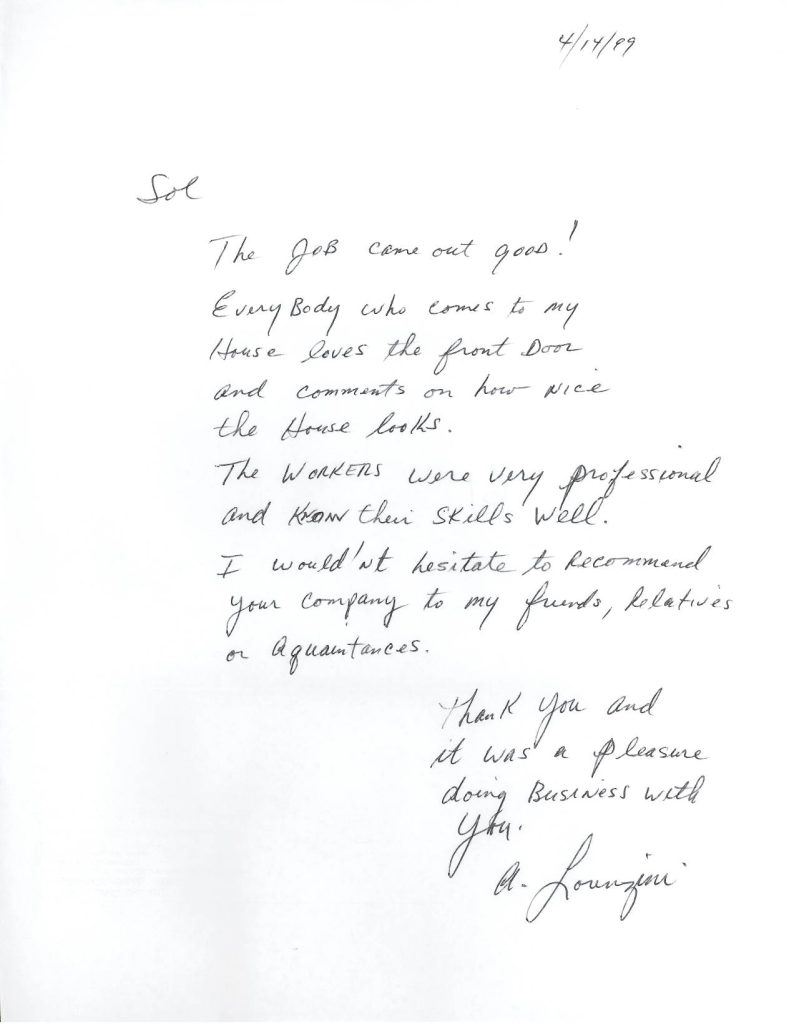 4/14/99
Sol
The JOB came out good!
EveryBody who comes to my
House loves the front Door
and comments on how Nice
the House looks.
The WORKERS were very professional
and KNOW their SKills Well.
I would'nt hesitate to Recommend
your company to my friends, Relatives
or Aquaintances.
Thank you and
it was a pleasure
doing Business with
You.
A. Lorenzini